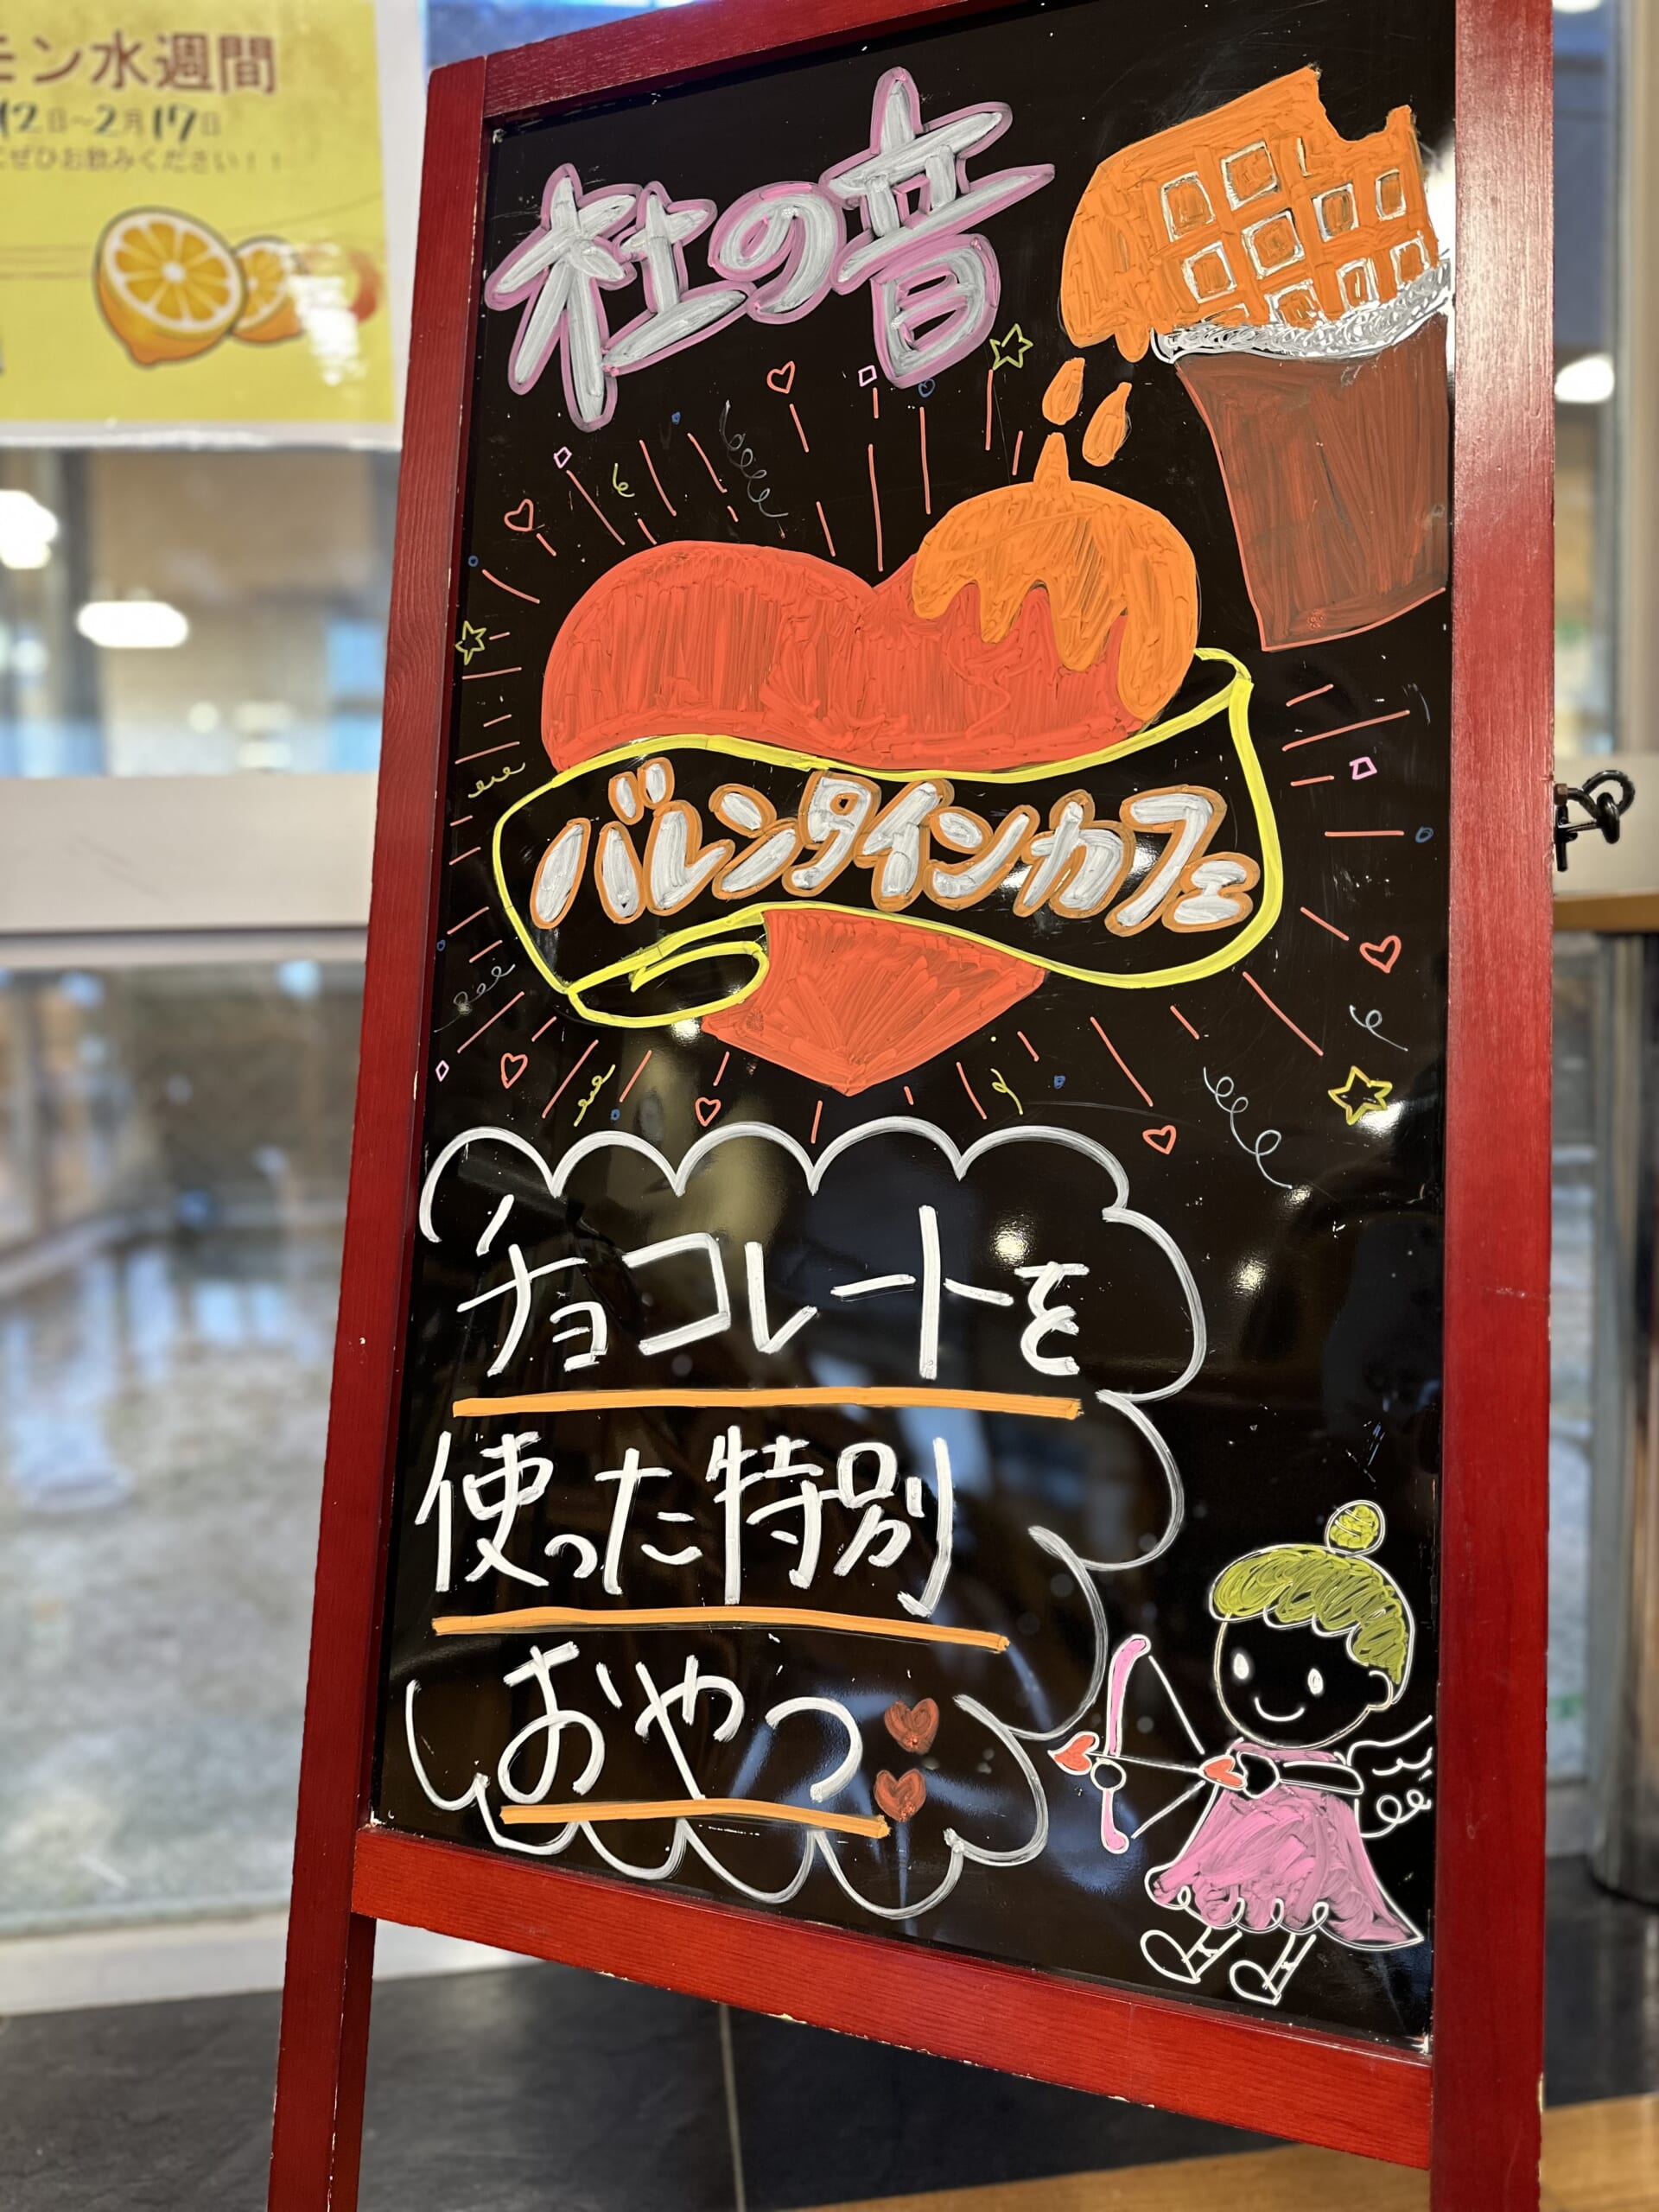 モン水週間
12日～2月17日
ぜひお飲みください！！
杜の音
バレンタインカフェ
チョコレートを
使った特別
おやつ